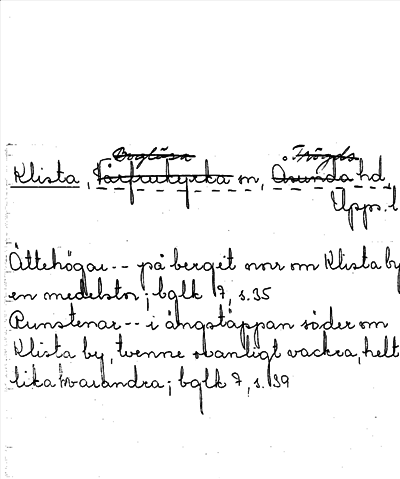 Boglösa Trögds
Klista, Vårfrukyrka sn, Åsunda hd,
Upps. l
Ättehögar -- på berget norr om Klista by
en medelstor; bglk 7, s. 35
Runstenar -- i ängstäppan söder om
Klista by, tvenne ovanligt vackra, helt
lika varandra; bglk 7, s. 39